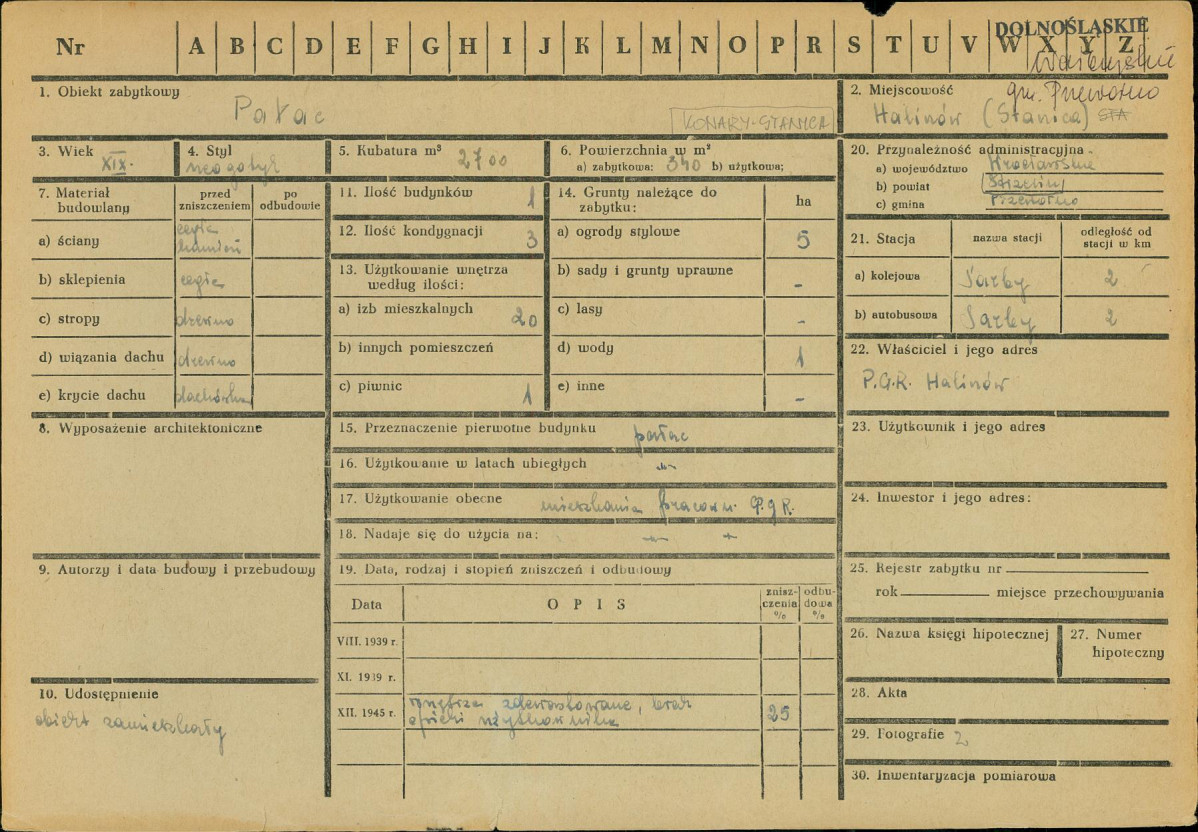 Nr A B C D E F G H I J K L M N O P R S T U V W X Y Z
DOLNOŚLĄSKIE
1. Obiekt zabytkowy
Pałac
KONARY-STANICA
2. Miejscowość
gm. Przeworno
Halinów (Stanica)
3. Wiek
XIX.
4. Styl
neogotyk
5. Kubatura m³ 2700
6. Powierzchnia w m²
a) zabytkowa: 340 b) użytkowa;
20. Przynależność administracyjna
a) województwo Wrocławskie
b) powiat Strzelin
c) gmina Przeworno
7. Materiał budowlany
przed zniszczeniem
po odbudowie
a) ściany cegła kamień
b) sklepienia cegła
c) stropy drewno
d) wiązania dachu drewno
e) krycie dachu dachówka
11. Ilość budynków 1
12. Ilość kondygnacji 3
13. Użytkowanie wnętrza według ilości:
a) izb mieszkalnych 20
b) innych pomieszczeń
c) piwnic 1
14. Grunty należące do zabytku:
ha
a) ogrody stylowe 5
b) sady i grunty uprawne -
c) lasy -
d) wody 1
e) inne -
21. Stacja
nazwa stacji
odległość od stacji w km
a) kolejowa Sarby 2
b) autobusowa Sarby 2
22. Właściciel i jego adres
P.G.R. Halinów
8. Wyposażenie architektoniczne
15. Przeznaczenie pierwotne budynku pałac
16. Użytkowanie w latach ubiegłych -"-
17. Użytkowanie obecne mieszkania pracown. P.G.R.
18. Nadaje się do użycia na: -"- -"-
23. Użytkownik i jego adres
24. Inwestor i jego adres:
9. Autorzy i data budowy i przebudowy
19. Data, rodzaj i stopień zniszczeń i odbudowy
Data
OPIS
zniszczenia %
odbudowa %
VIII. 1939 r.
XI. 1939 r.
XII. 1945 r. wnętrza zdewastowane, brak opieki użytkownika 25
25. Rejestr zabytku nr
rok miejsce przechowywania
26. Nazwa księgi hipotecznej
27. Numer hipoteczny
10. Udostępnienie
obiekt zamieszkały
28. Akta
29. Fotografie 2
30. Inwentaryzacja pomiarowa